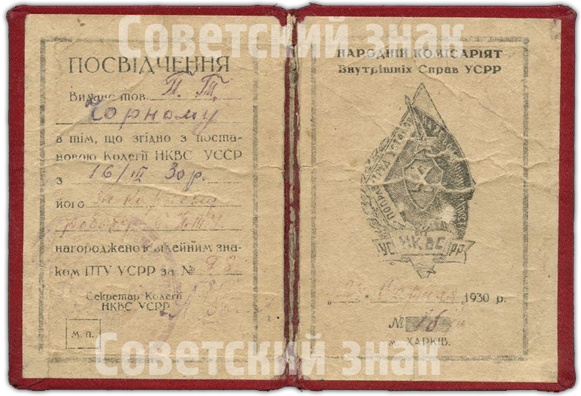 Советский знак
ПОСВІДЧЕННЯ
Видане тов. П. Т.
Чорному
в тім, що згідно з поста-
новою Колегії НКВС УСРР
з 16/ІІІ 30 р.
його за
нагороджено ювілейним зна-
ком ПТУ УСРР за №
Секретар Колегії
НКВС УСРР
М. П.
НАРОДНІЙ КОМІСАРІЯТ
Внутрішніх Справ УСРР
УС НКВС РР
1930 р.
№
м. ХАРКІВ.
Советский знак